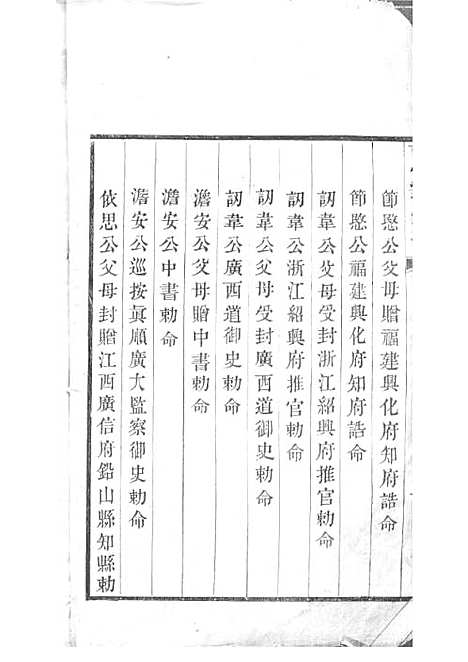 節愍公父母贈福建興化府知府誥命
節愍公福建興化府知府誥命
訒韋公父母受封浙江紹興府推官勅命
訒韋公浙江紹興府推官勅命
訒韋公父母受封廣西道御史勅命
訒韋公廣西道御史勅命
澹安公父母贈中書勅命
澹安公中書勅命
澹安公巡按眞順廣大監察御史勅命
依思公父母封贈江西廣信府鉛山縣知縣勅